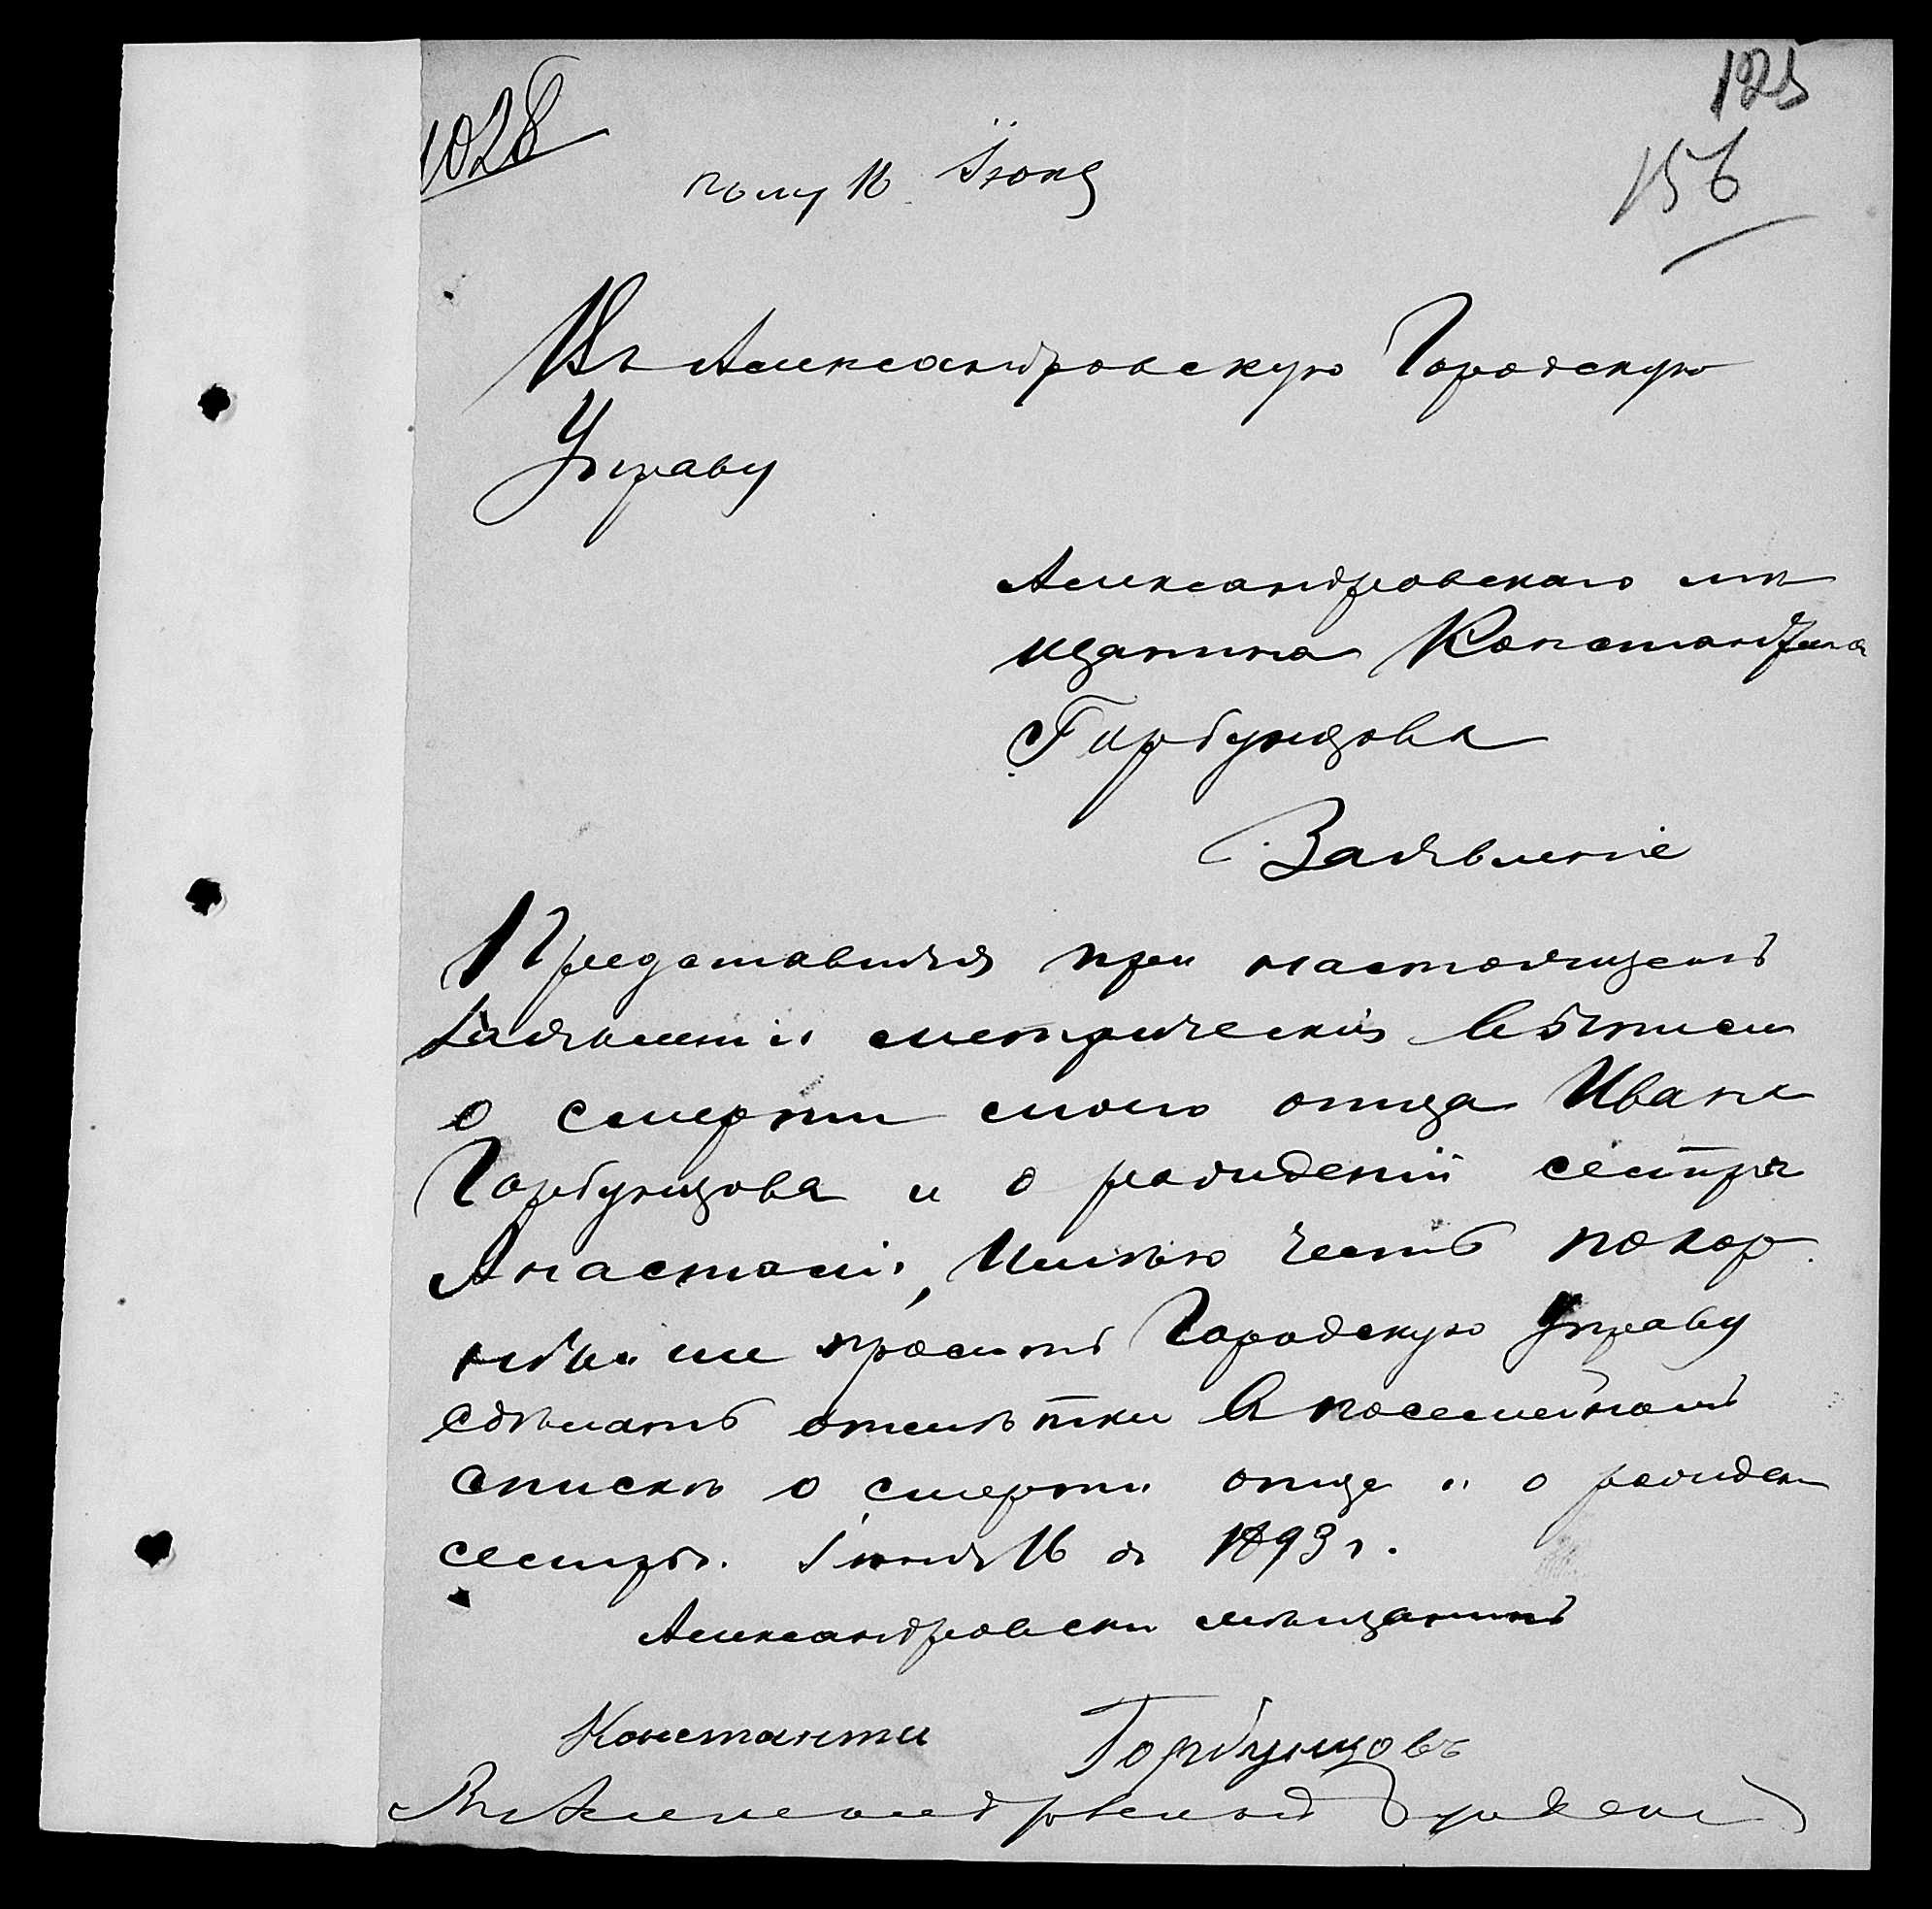 1028
125
156
полу 16 Іюня
Въ Александровскую Городскую
Управу
Александровскаго мѣ
щанина Константина
Горбунцова
Заявленіе
Представляя при настоящемъ
заявленіи метрическія выписи
о смерти моего отца Ивана
Горбунцова и о рожденіи сестры
Анастасіи, Имѣю честь покор
нѣйше просить Городскую Управу
сдѣлать отмѣтки в посемейномъ
спискѣ о смерти отца и о рожден
сестры. Іюня 16 д 1893 г.
Александровски мѣщанинъ
Константи Горбунцовъ